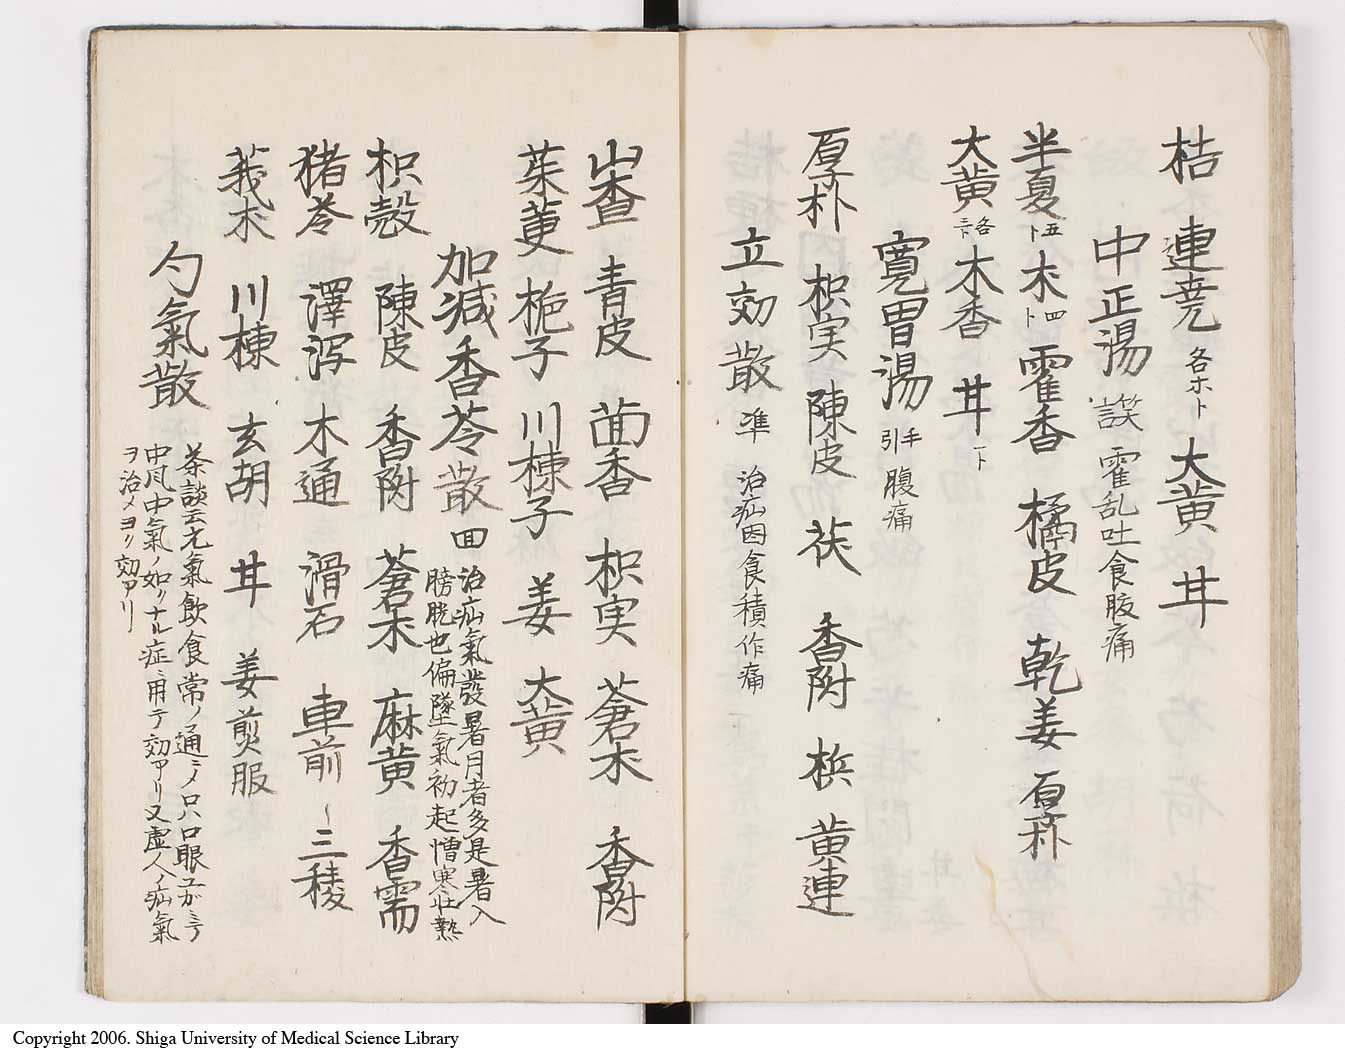 桔 連尭 各ホト 大黄 甘
中正湯 霍乱吐食腹痛
半夏 五ト 朮 四ト 霍香 橘皮 乾姜 厚朴
大黄 各三ト 木香 甘 一ト
寛胃湯 手引 腹痛
厚朴 枳実 陳皮 茯 香附 梹 黄連
立効散 準 治疝因食積作痛
山査 青皮 茴香 枳実 蒼朮 香附
茱萸 梔子 川楝子 姜 大黄
加減香苓散 回 治疝氣發暑月者多是暑入
膀胱也偏墜氣初起憎寒壮熱
枳殻 陳皮 香附 蒼朮 麻黄 香需
猪苓 澤泻 木通 滑石 車前 三稜
莪朮 川楝 玄胡 甘 姜煎服
勻氣散 茶談云元氣飲食常ノ通ニメ只口眼ユガミテ
中風中氣ノ如クナル症ニ用テ効アリ又虚人ノ疝氣
ヲ治メヨリ効アリ
Copyright 2006. Shiga University of Medical Science Library